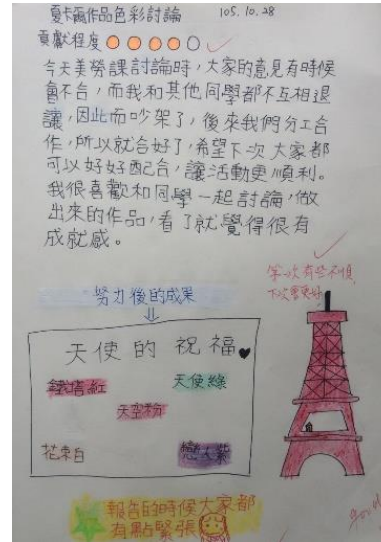 夏卡爾作品色彩討論 105.10.28
貢獻程度
今天美勞課討論時，大家的意見有時候
會不合，而我和其他同學都不互相退
讓，因此而吵架了，後來我們分工合
作，所以就合好了，希望下次大家都
可以好好配合，讓活動更順利。
我很喜歡和同學一起討論，做
出來的作品，看了就覺得很有
成就感。
努力後的成果
天使的祝福
鐵塔紅
天使綠
天空粉
花束白
戀人紫
報告的時候大家都
有點緊張